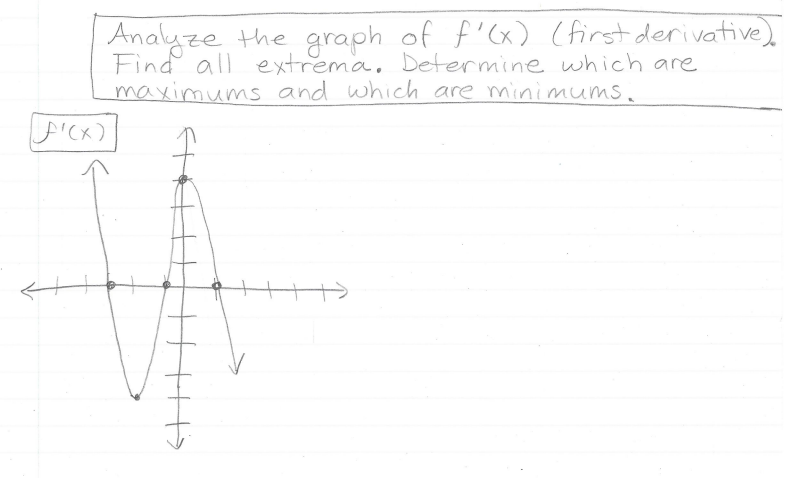 Analyze the graph of f'(x) (first derivative).
Find all extrema. Determine which are
maximums and which are minimums.
f'(x)